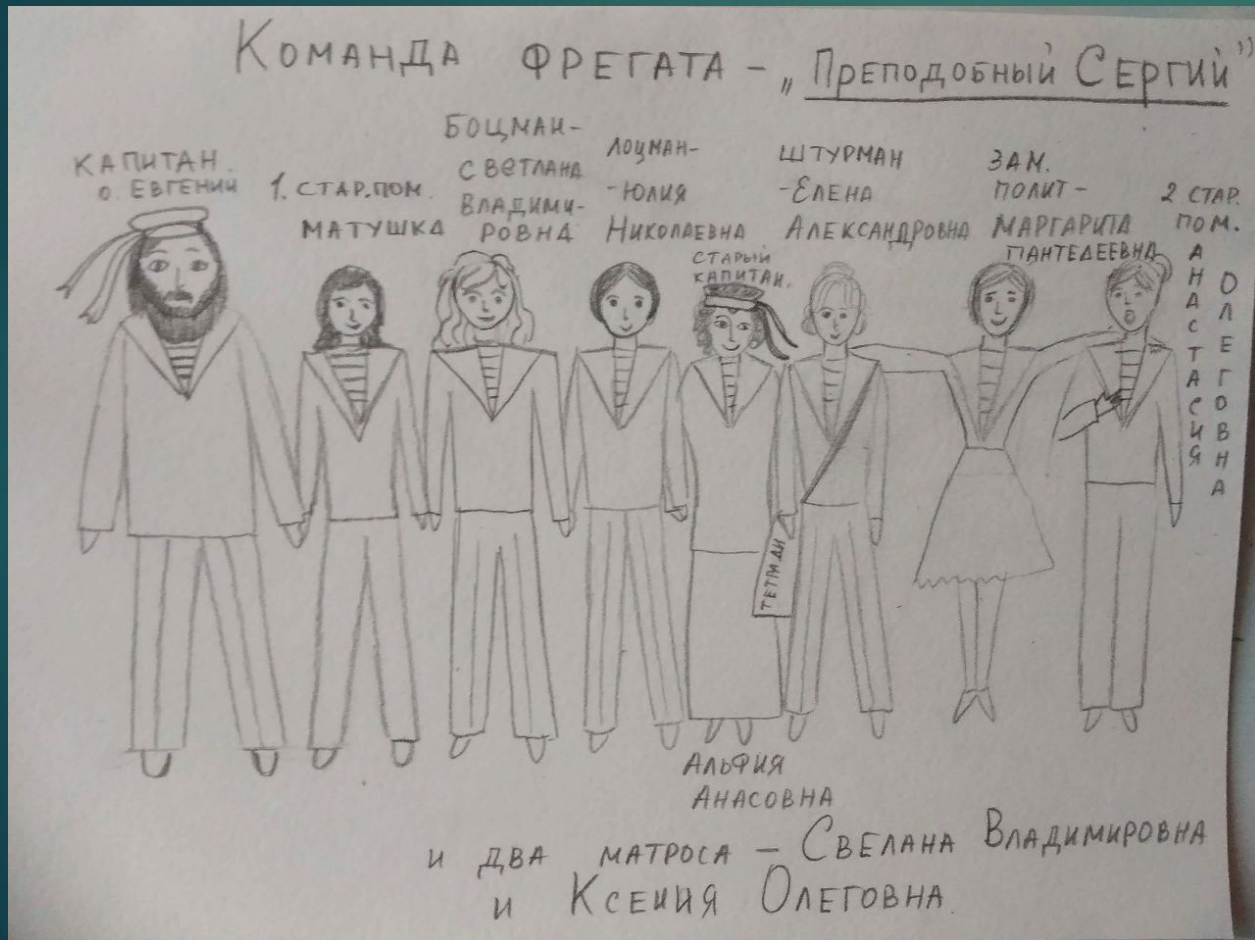 Команда фрегата – „Преподобный Сергий"
Капитан.
о. Евгений
1. стар. пом.
матушка
Боцман-
Светлана
Владими-
ровна
Лоцман-
-Юлия
Николаевна
Старый
капитан.
Штурман
-Елена
Александровна
Зам.
полит-
Маргарита
Пантедеевна
2 стар.
пом.
Анастасия
Олеговна
тетради
Альфия
Анасовна
и два матроса – Свелана Владимировна
и Ксения Олеговна